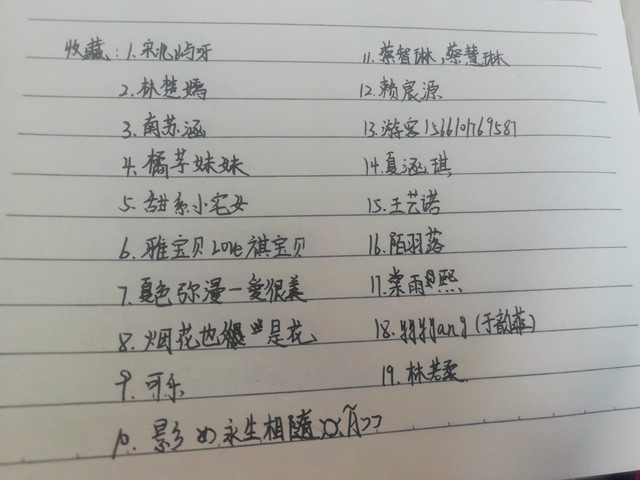 收藏：1.宋化屿牙
2.林楚嫣
3.南苏涵
4.橘芋妹妹
5.甜系小宅女
6.雅宝贝Love祺宝贝
7.夏色弥漫一爱很美
8.烟花也是花
9.可乐
10.影 永生相随
11.蔡智琳,蔡慧琳
12.赖宸源
13.游客1566101769587
14.夏涵琪
15.王艺诺
16.陌羽落
17.棠雨熙
18.yyyyang(于韵菲)
19.林若柔